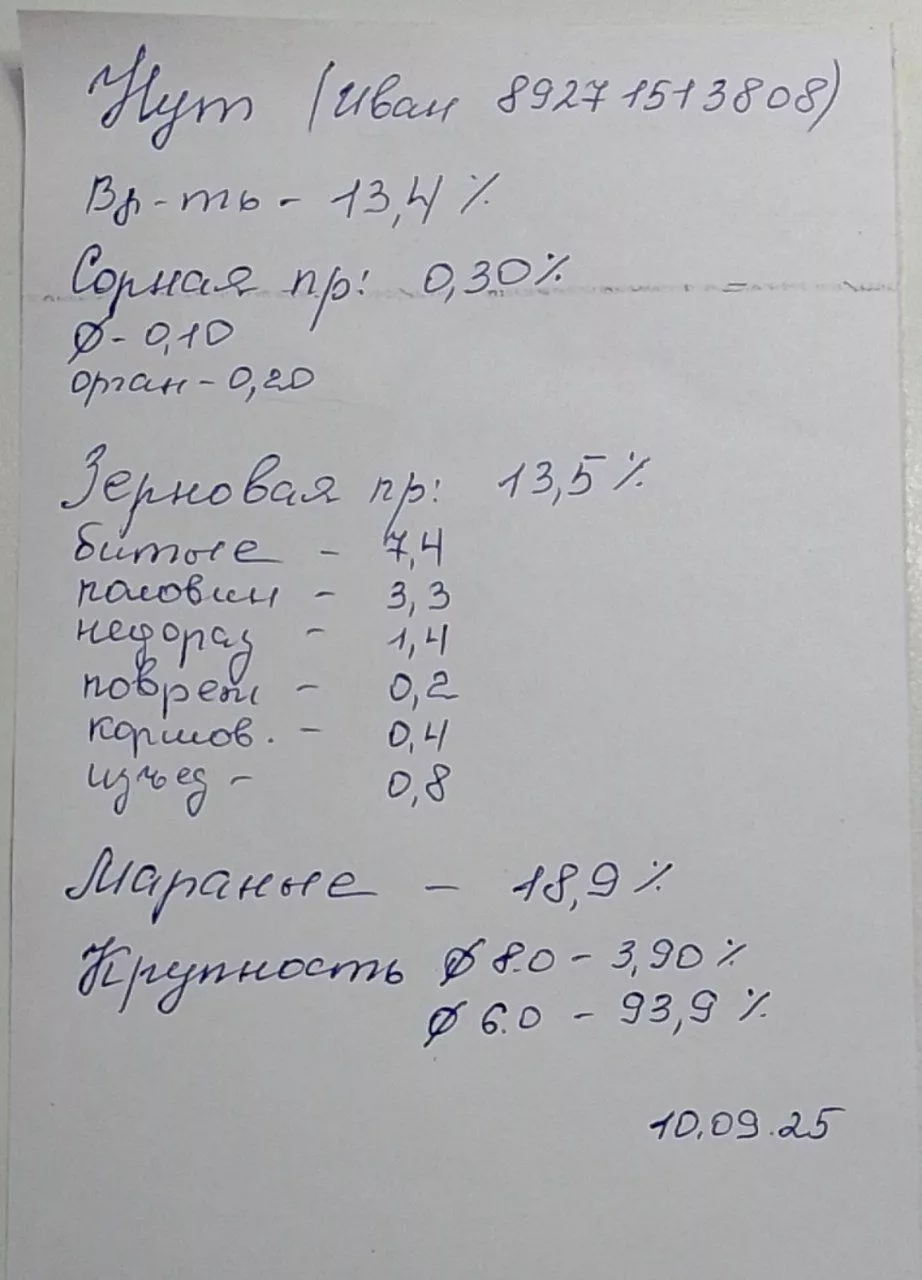 Нут (Иван 89271513808)
Вл-ть - 13,4 %
Сорная пр: 0,30 %
Ø - 0,10
орган - 0,20
Зерновая пр: 13,5 %
битые - 7,4
половин - 3,3
недораз - 1,4
повреж - 0,2
кормов. - 0,4
изъед - 0,8
Мараные - 18,9 %
Крупность Ø 8.0 - 3,90 %
Ø 6.0 - 93,9 %
10.09.25